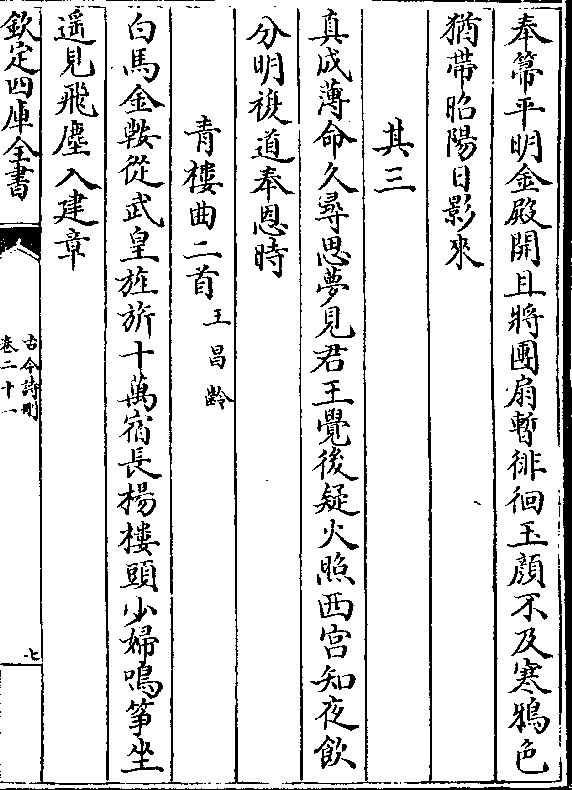 奉箒平明金殿開且將團扇暫徘徊玉顔不及寒鴉色
猶帶昭陽日影來
其三
真成薄命久尋思夢見君王覺後疑火照西宫知夜飲
分明複道奉恩時
青樓曲二首王昌齡
白馬金鞍從武皇旌旂十萬宿長楊樓頭少婦鳴筝坐
遥見飛塵入建章
欽定四庫全書
古今詩刪
卷二十一
七